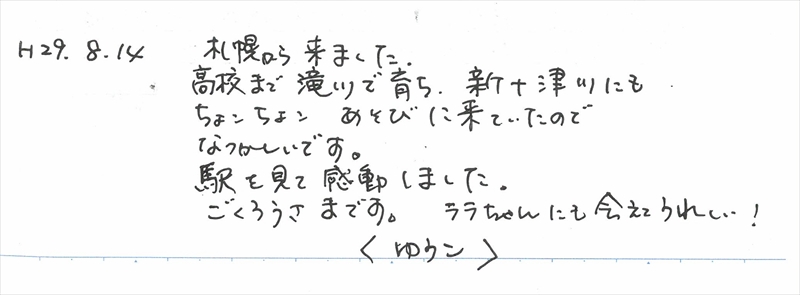 H29.8.14 札幌から来ました.
高校まで滝川で育ち. 新十津川にも
ちょンちょン あそびに来ていたので
なつかしいです。
駅を見て感動しました.
ごくろうさまです。 ララちゃんにも会えてうれしい!
〈ゆうこ〉